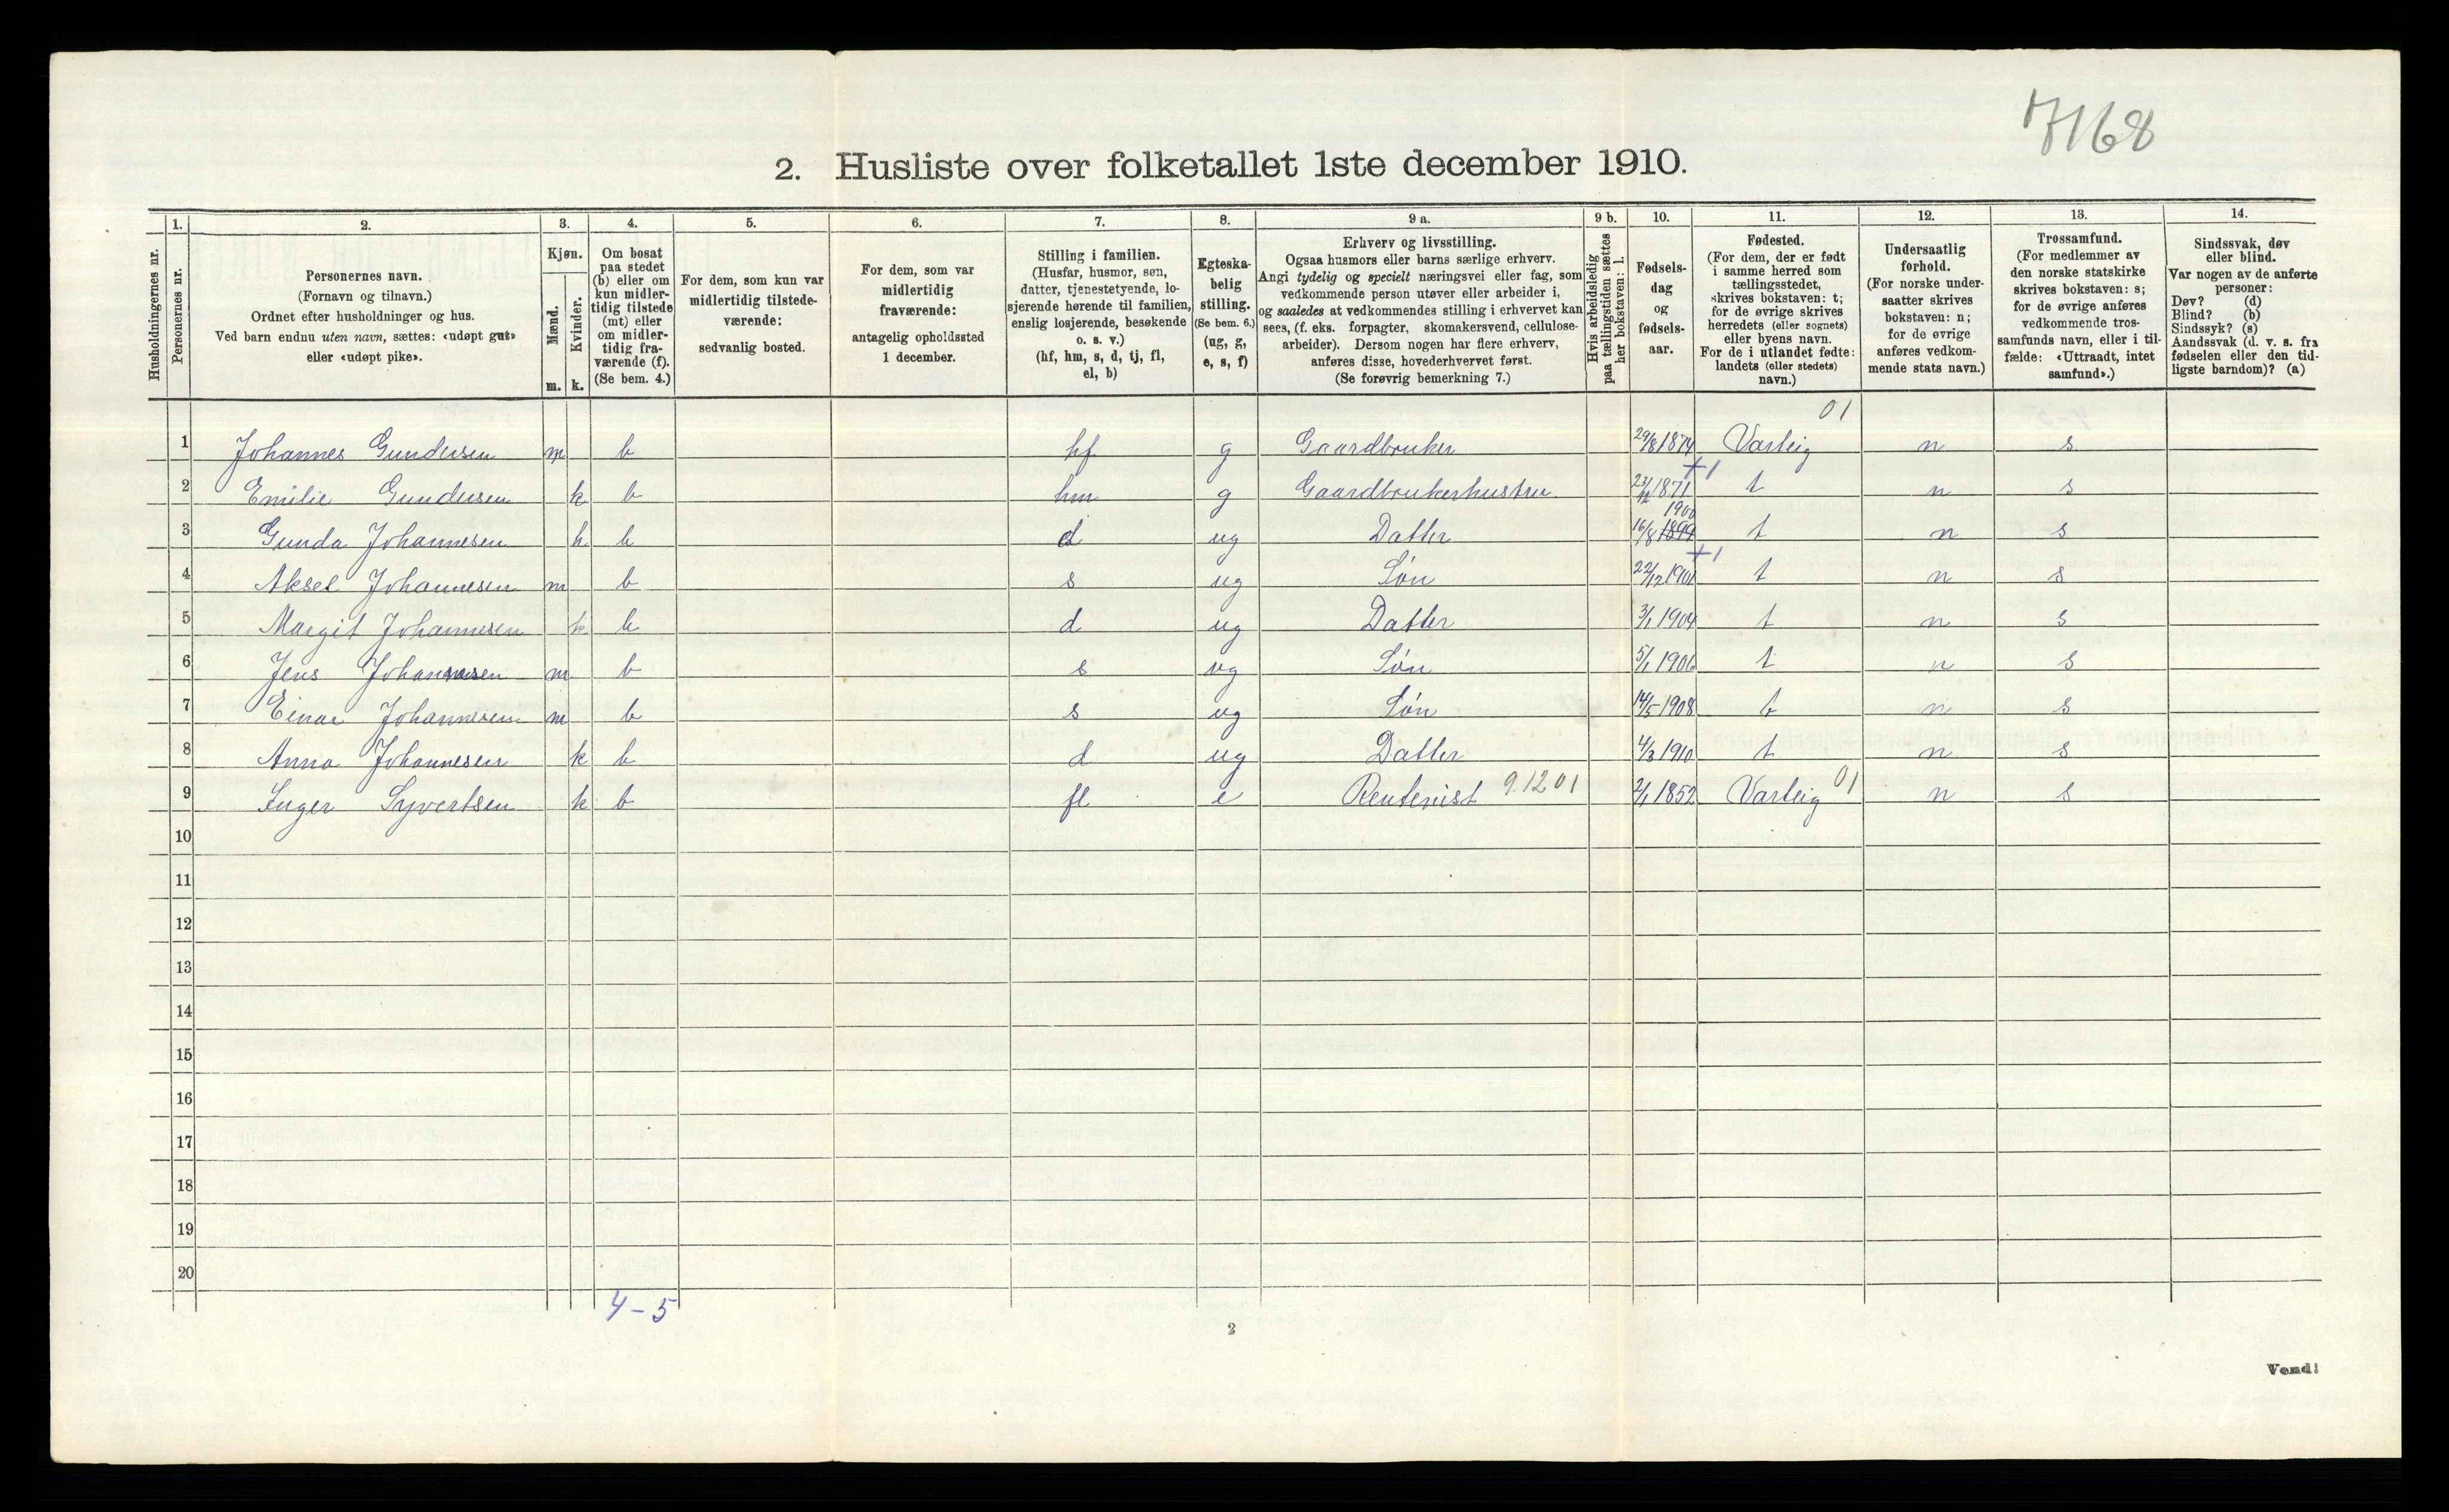 7168
2. Husliste over folketallet 1ste december 1910.
1. 2. 3. 4. 5. 6. 7. 8. 9 a. 9 b. 10. 11. 12. 13. 14.
Husholdningernes nr.
Personernes nr.
Personernes navn.
(Fornavn og tilnavn.)
Ordnet efter husholdninger og hus.
Ved barn endnu uten navn, sættes: «udøpt gut»
eller «udøpt pike».
Kjøn.
Mænd.
Kvinder.
m. k.
Om bosat
paa stedet
(b) eller om
kun midler-
tidig tilstede
(mt) eller
om midler-
tidig fra-
værende (f).
(Se bem. 4.)
For dem, som kun var
midlertidig tilstede-
værende:
sedvanlig bosted.
For dem, som var
midlertidig
fraværende:
antagelig opholdssted
1 december.
Stilling i familien.
(Husfar, husmor, søn,
datter, tjenestetyende, lo-
sjerende hørende til familien,
enslig losjerende, besøkende
o. s. v.)
(hf, hm, s, d, tj, fl,
el, b)
Egteska-
belig
stilling.
(Se bem. 6.)
(ug, g,
e, s, f)
Erhverv og livsstilling.
Ogsaa husmors eller barns særlige erhverv.
Angi tydelig og specielt næringsvei eller fag, som
vedkommende person utøver eller arbeider i,
og saaledes at vedkommendes stilling i erhvervet kan
sees, (f. eks. forpagter, skomakersvend, cellulose-
arbeider). Dersom nogen har flere erhverv,
anføres disse, hovederhvervet først.
(Se forøvrig bemerkning 7.)
Hvis arbeidsledig
paa tællingstiden sættes
her bokstaven: l.
Fødsels-
dag
og
fødsels-
aar.
Fødested.
(For dem, der er født
i samme herred som
tællingsstedet,
skrives bokstaven: t;
for de øvrige skrives
herredets (eller sognets)
eller byens navn.
For de i utlandet fødte:
landets (eller stedets)
navn.)
Undersaatlig
forhold.
(For norske under-
saatter skrives
bokstaven: n;
for de øvrige
anføres vedkom-
mende stats navn.)
Trossamfund.
(For medlemmer av
den norske statskirke
skrives bokstaven: s;
for de øvrige anføres
vedkommende tros-
samfunds navn, eller i til-
fælde: «Uttraadt, intet
samfund».)
Sindssvak, døv
eller blind.
Var nogen av de anførte
personer:
Døv? (d)
Blind? (b)
Sindssyk? (s)
Aandssvak (d. v. s. fra
fødselen eller den tid-
ligste barndom)? (a)
01
1 Johannes Gundersen m b hf g Gaardbruker 29/8 1874 Varteig n s
+1
2 Emilie Gundersen k b hm g Gaardbrukerhustru 23/12 1871 t n s
1900
3 Gunda Johannesen k b d ug Datter 16/8 1899 t n s
+1
4 Aksel Johannesen m b s ug Søn 22/12 1901 t n s
5 Margit Johannesen k b d ug Datter 3/1 1904 t n s
6 Jens Johannesen m b s ug Søn 5/1 1906 t n s
7 Einar Johannesen m b s ug Søn 14/5 1908 t n s
8 Anna Johannesen k b d ug Datter 4/3 1910 t n s
9 Inger Syvertsen k b fl e Rentenist 9.12 01 2/1 1852 Varteig 01 n s
10
11
12
13
14
15
16
17
18
19
20
4-5
2
Vend!